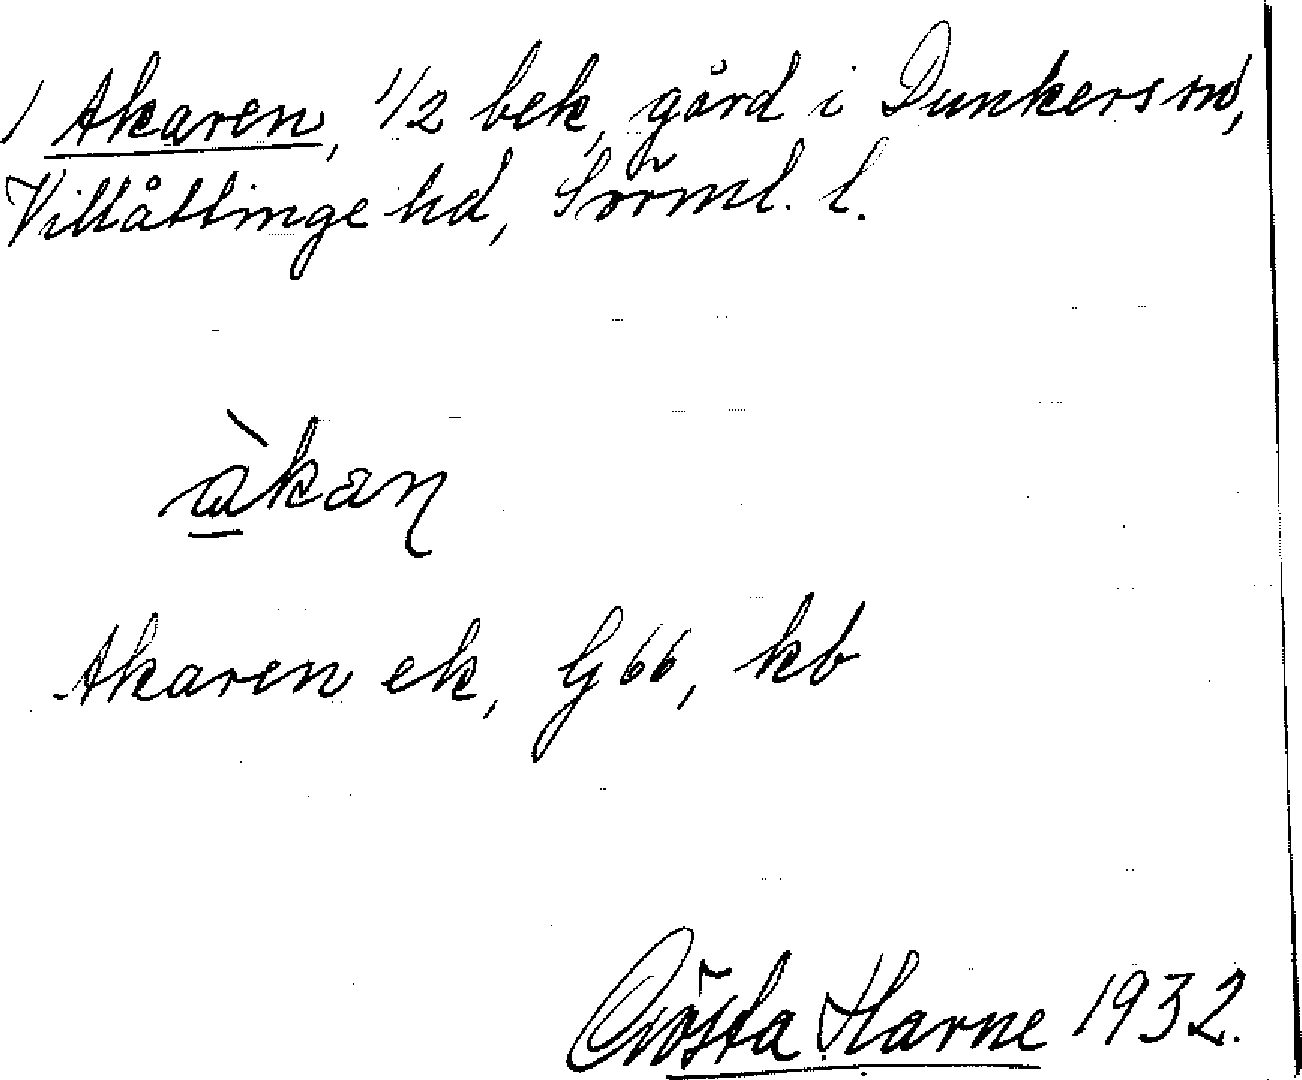 1 Akaren, 1/2 bek, gård i Dunkers sn,
Villåttinge hd, Sörml. l.
àkaɳ
Akaren ek, G66, kb
Gösta Harne 1932.